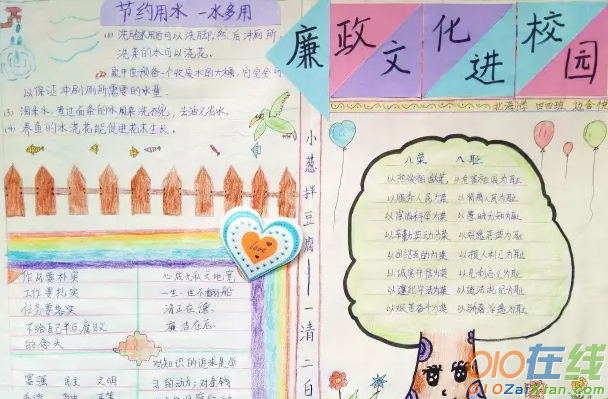 节约用水 一水多用
(1) 洗脸水用后可以洗脚,然后冲厕所
洗菜的水可以浇花。
(2) 家中应预备一个收废水的大桶,它完全可
以保证冲刷厕所需要的水量
(3) 淘米水,煮过面条的水用来洗碗,去油又省水。
(4) 养鱼的水浇花能促进花木生长。
廉政文化进校园
小葱拌豆腐——一清二白
八荣 八耻
以热爱祖国为荣 以危害祖国为耻
以服务人民为荣 以背离人民为耻
以崇尚科学为荣 以愚昧无知为耻
以辛勤劳动为荣 以好逸恶劳为耻
以团结互助为荣 以损人利己为耻
以诚实守信为荣 以见利忘义为耻
以遵纪守法为荣 以违法乱纪为耻
以艰苦奋斗为荣 以骄奢淫逸为耻
Love
作风要朴实
工作要扎实
任务要落实
不给自己半点腐败
的念头
心底无私天地宽
一生
清正在德
廉洁在志
富强 民主 文明
对知识的追求是
习的动力,对金钱
010在线
010ZaiXian.com